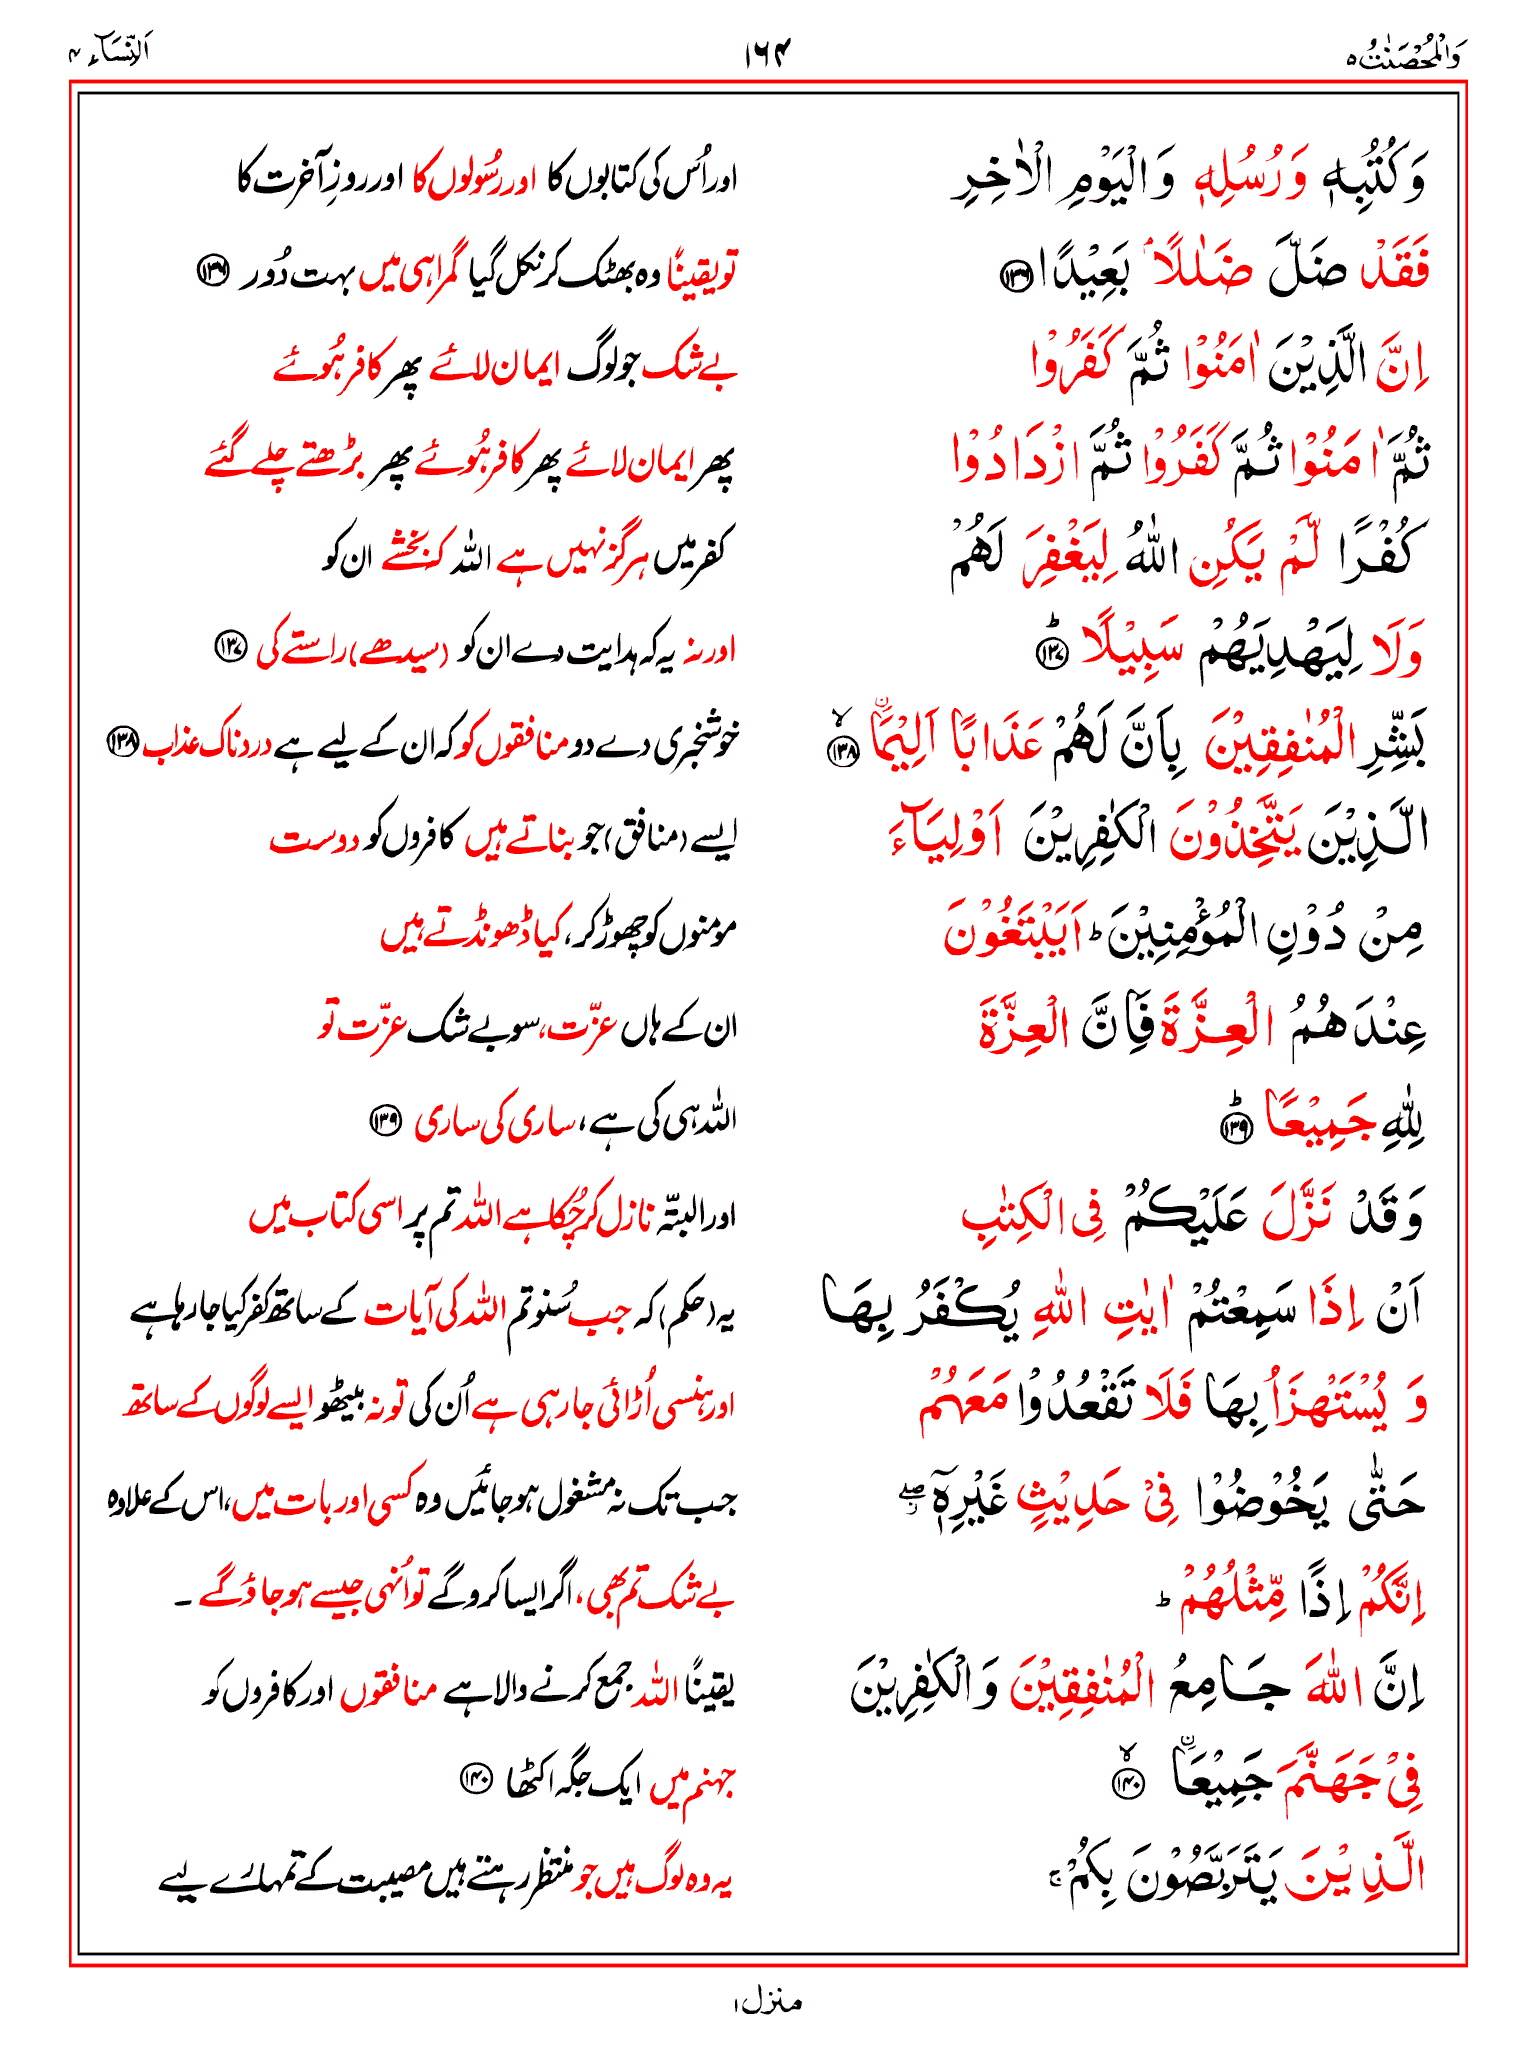 وَالْمُحْصَنٰتُ ۵ ۱۶۴ اَلنِّسَآء ۴
وَكُتُبِهٖ وَرُسُلِهٖ وَالْيَوْمِ الْاٰخِرِ اور اُس کی کتابوں کا اور رسُولوں کا اور روزِ آخرت کا
فَقَدْ ضَلَّ ضَلٰلًاۢ بَعِيْدًا ۝۱۳۶ تو یقیناً وہ بھٹک کر نکل گیا گمراہی میں بہت دُور ۝۱۳۶
اِنَّ الَّذِيْنَ اٰمَنُوْا ثُمَّ كَفَرُوْا بے شک جو لوگ ایمان لائے پھر کافر ہُوئے
ثُمَّ اٰمَنُوْا ثُمَّ كَفَرُوْا ثُمَّ ازْدَادُوْا پھر ایمان لائے پھر کافر ہُوئے پھر بڑھتے چلے گئے
كُفْرًا لَّمْ يَكُنِ اللّٰهُ لِيَغْفِرَ لَهُمْ کفر میں ہرگز نہیں ہے اللہ کہ بخشے ان کو
وَلَا لِيَهْدِيَهُمْ سَبِيْلًا ؕ۝۱۳۷ اور نہ یہ کہ ہدایت دے ان کو (سیدھے) راستے کی ۝۱۳۷
بَشِّرِ الْمُنٰفِقِيْنَ بِاَنَّ لَهُمْ عَذَابًا اَلِيْمَاۨ ۙ۝۱۳۸ خوشخبری دے دو منافقوں کو کہ ان کے لیے ہے دردناک عذاب ۝۱۳۸
الَّذِيْنَ يَتَّخِذُوْنَ الْكٰفِرِيْنَ اَوْلِيَآءَ ایسے (منافق) جو بناتے ہیں کافروں کو دوست
مِنْ دُوْنِ الْمُؤْمِنِيْنَ ؕ اَيَبْتَغُوْنَ مومنوں کو چھوڑ کر، کیا ڈھونڈتے ہیں
عِنْدَهُمُ الْعِزَّةَ فَاِنَّ الْعِزَّةَ ان کے ہاں عزّت، سو بے شک عزّت تو
لِلّٰهِ جَمِيْعًا ؕ۝۱۳۹ اللہ ہی کی ہے، ساری کی ساری ۝۱۳۹
وَقَدْ نَزَّلَ عَلَيْكُمْ فِى الْكِتٰبِ اور البتّہ نازل کر چُکا ہے اللہ تم پر اسی کتاب میں
اَنْ اِذَا سَمِعْتُمْ اٰيٰتِ اللّٰهِ يُكْفَرُ بِهَا یہ (حکم) کہ جب سُنو تم اللہ کی آیات کے ساتھ کفر کیا جا رہا ہے
وَيُسْتَهْزَاُ بِهَا فَلَا تَقْعُدُوْا مَعَهُمْ اور ہنسی اُڑائی جا رہی ہے اُن کی تو نہ بیٹھو ایسے لوگوں کے ساتھ
حَتّٰى يَخُوْضُوْا فِىْ حَدِيْثٍ غَيْرِهٖٓ ۖ جب تک نہ مشغول ہو جائیں وہ کسی اور بات میں، اس کے علاوہ
اِنَّكُمْ اِذًا مِّثْلُهُمْ ؕ بے شک تم بھی، اگر ایسا کرو گے تو اُنہی جیسے ہو جاؤ گے ۔
اِنَّ اللّٰهَ جَامِعُ الْمُنٰفِقِيْنَ وَالْكٰفِرِيْنَ یقیناً اللہ جمع کرنے والا ہے منافقوں اور کافروں کو
فِىْ جَهَنَّمَ جَمِيْعَاۨ ۙ۝۱۴۰ جہنم میں ایک جگہ اکٹھا ۝۱۴۰
الَّذِيْنَ يَتَرَبَّصُوْنَ بِكُمْ ۚ یہ وہ لوگ ہیں جو منتظر رہتے ہیں مصیبت کے تمہارے لیے
منزل ۱